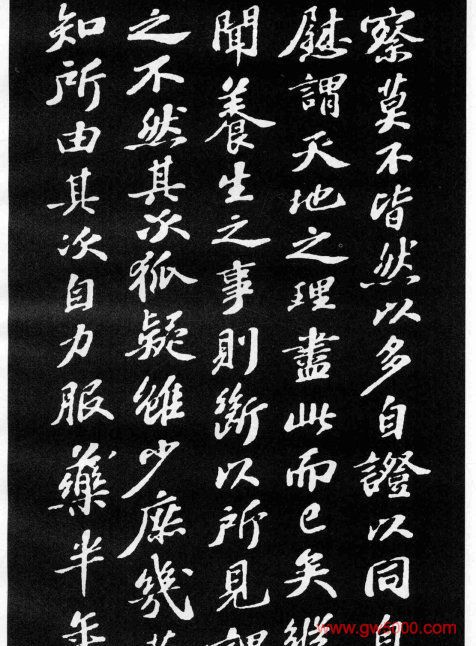 察莫不皆然以多自證以同自
慰謂天地之理盡此而已矣縱
聞養生之事則斷以所見謂
之不然其次狐疑雖少庶幾莫
知所由其次自力服藥半年
www.gw5000.com